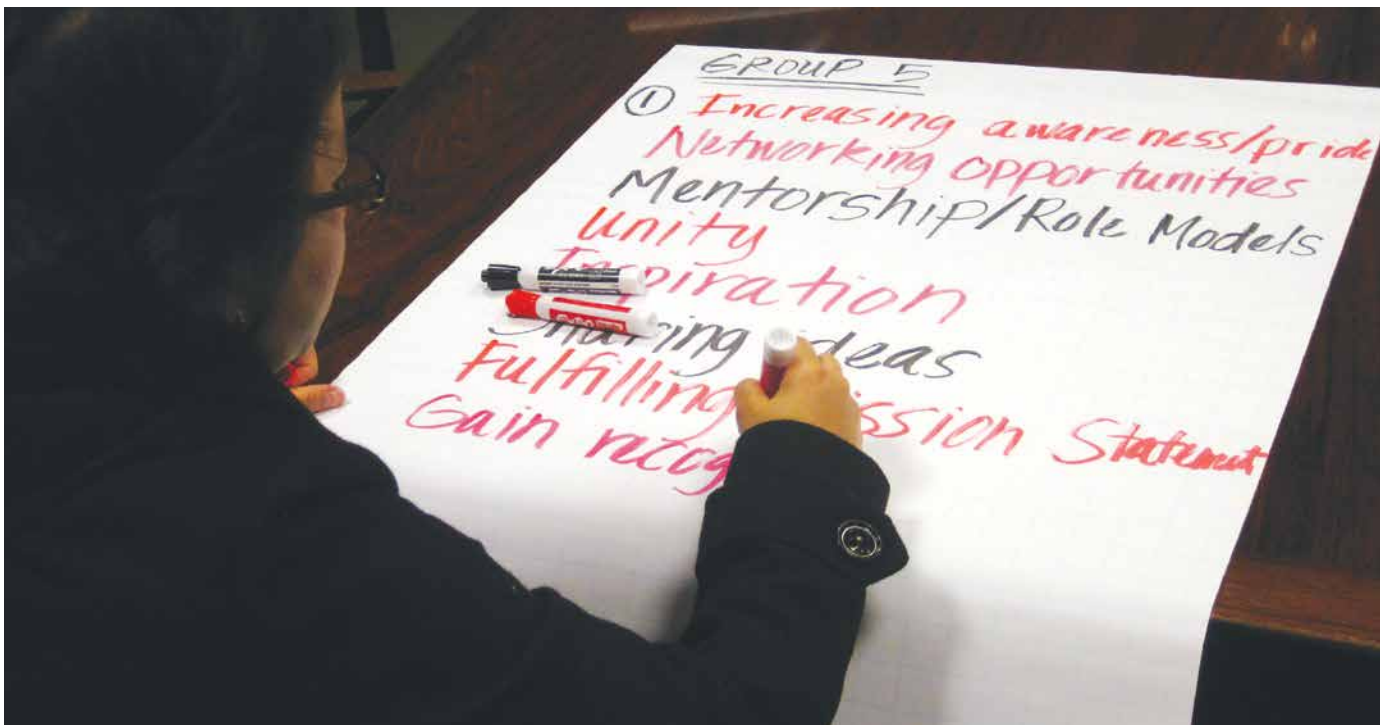 GROUP 5
① Increasing awareness/pride
Networking opportunities
Mentorship/Role Models
Unity
Inspiration
Sharing ideas
Fulfilling ission Statement
Gain recog